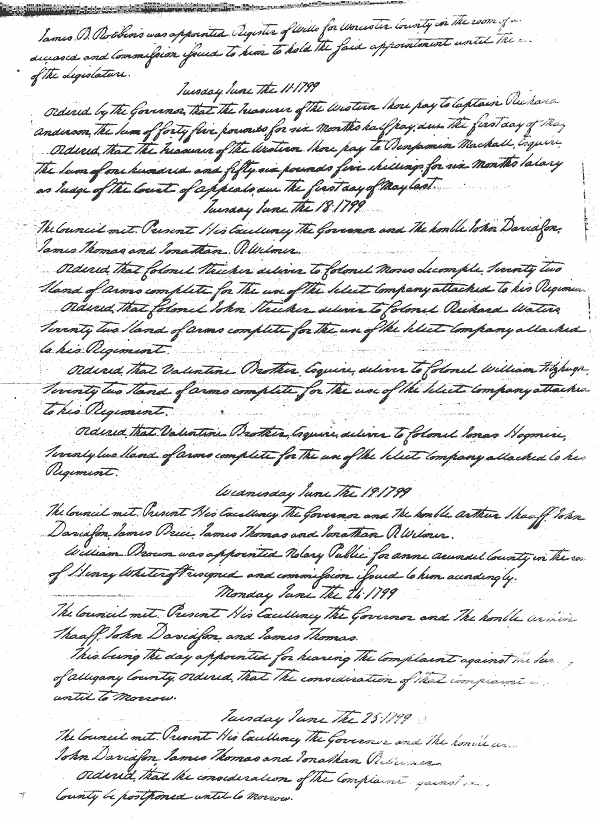 James B. Robbins was appointed Register of Wills for Worcester County in the room of
deceased and Commission issued to him to hold the said appointment until the
of the Legislature.
Tuesday June the 11. 1799
Ordered by the Governor, that the Treasurer of the Western Shore pay to Captain Richard
Anderson, the sum of forty five pounds for six Months half pay, due the first day of May
Ordered, that the Treasurer of the Western Shore pay to Benjamin Mackall, Esquire
the sum of one hundred and fifty six pounds five shillings for six Months Salary
as Judge of the Court of Appeals due the first day of May last.
Tuesday June the 18. 1799
The Council met. Present His Excellency the Governor and the honble John Davidson,
James Thomas and Jonathan R. Wilmer.
Ordered that Colonel Stricker deliver to Colonel Moses Lecompte, Seventy two
Stand of Arms complete for the use of the Select Company attached to his Regimen
Ordered, that Colonel John Stricker deliver to Colonel Richard Waters
Seventy two Stand of Arms complete for the use of the Select Company attached
to his Regiment.
Ordered, that Valentine Brother, Esquire, deliver to Colonel William Fitzhugh
Seventy two Stand of Arms complete for the use of the Select Company attached
to his Regiment.
Ordered, that Valentine Brother, Esquire, deliver to Colonel Jonas Hogmire,
Seventy two Stand of Arms complete for the use of the Select Company attached to his
Regiment.
Wednesday June the 19. 1799
The Council met. Present His Excellency the Governor and the honble Arthur Shaaff, John
Davidson, James Brice, James Thomas and Jonathan R. Wilmer.
William Brown was appointed Notary Public for Anne Arundel County in the
of Henry Whitcroft resigned and commission issued to him accordingly.
Monday June the 24. 1799
The Council met. Present His Excellency the Governor and the honble
Shaaff, John Davidson, and James Thomas.
This being the day appointed for hearing the Complaint against the
of Allegany County, Ordered, that the consideration of that complaint
until to Morrow.
Tuesday June the 25. 1799
The Council met. Present His Excellency the Governor and the honble
John Davidson James Thomas and Jonathan R. Wilmer.
Ordered, that the consideration of the Complaint against
County be postponed until to Morrow.